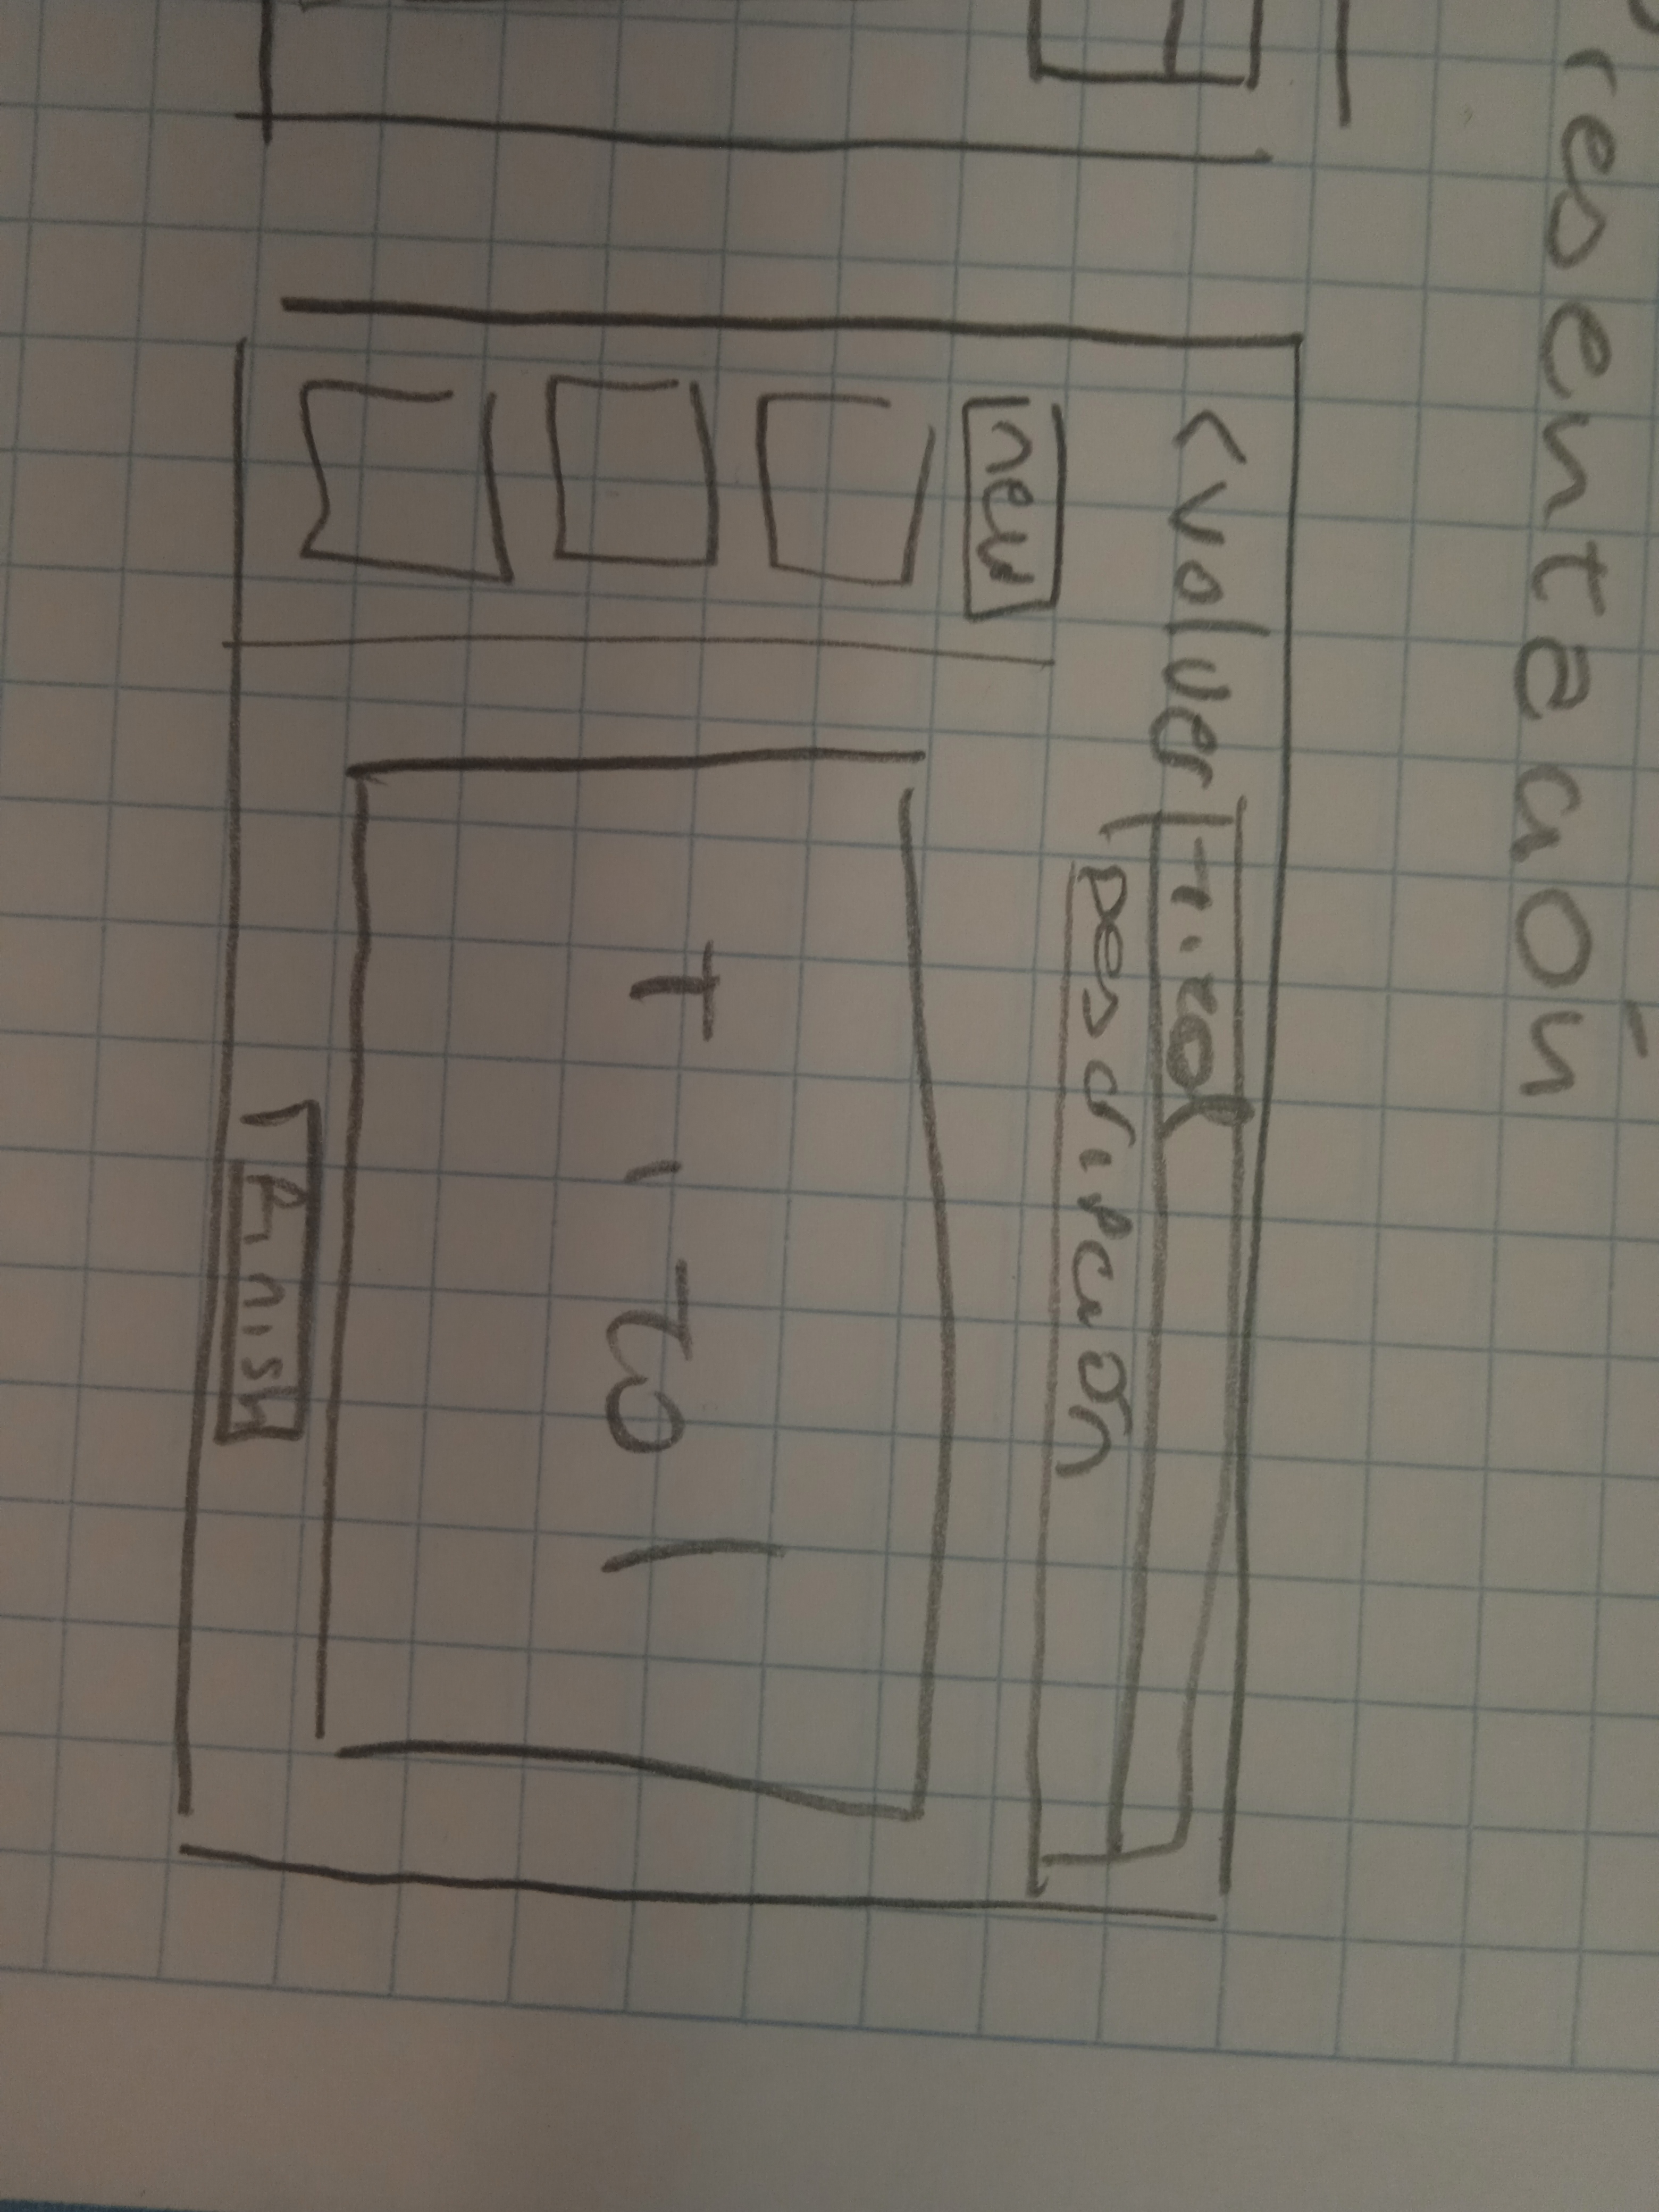 resentación
< volver Titol
Descripción
new
Titol
Finish